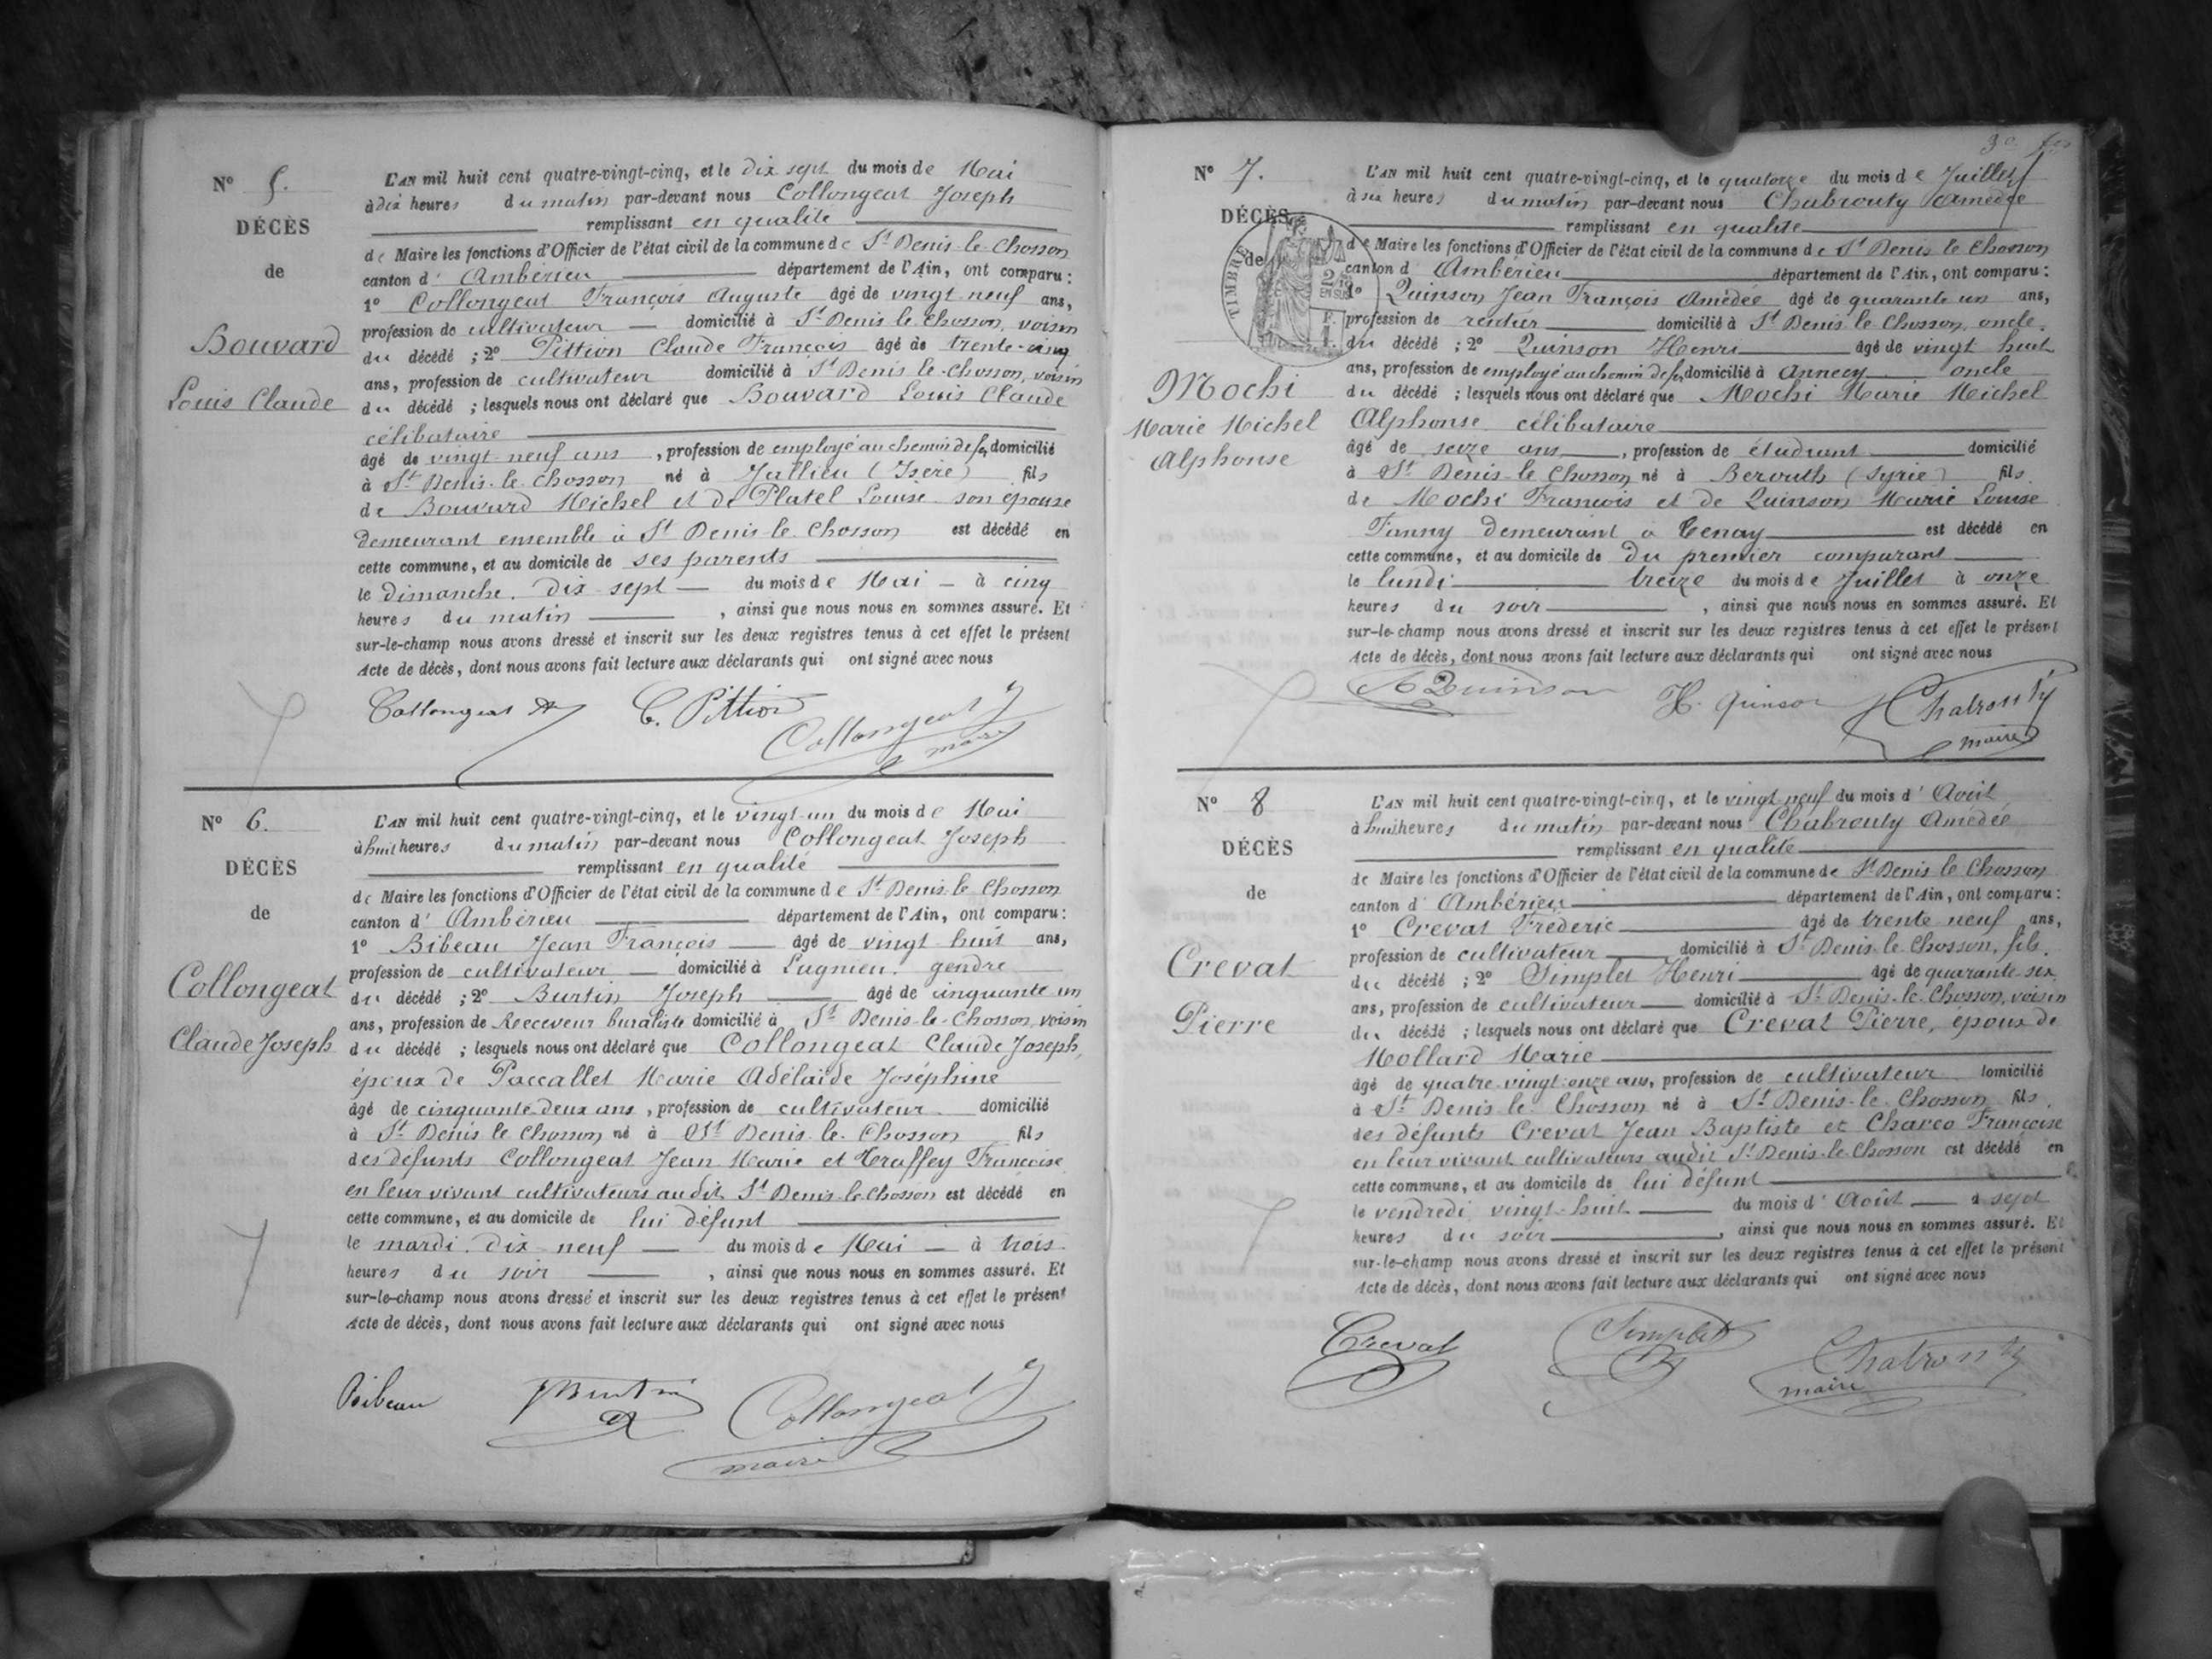 N° 5.
DÉCÈS
de
Bouvard
Louis Claude
L'AN mil huit cent quatre-vingt-cinq, et le dix sept du mois de Mai
à dix heures du matin par-devant nous Collongeat Joseph
remplissant en qualité
de Maire les fonctions d'Officier de l'état civil de la commune de St Denis-le-Chosson
canton d'Ambérieu département de l'Ain, ont comparu :
1° Collongeat François Auguste âgé de vingt neuf ans,
profession de cultivateur domicilié à St Denis le Chosson, voisin
du décédé ; 2° Pittion Claude François âgé de trente-cinq
ans, profession de cultivateur domicilié à St Denis le Chosson, voisin
du décédé ; lesquels nous ont déclaré que Bouvard Louis Claude
célibataire
âgé de vingt neuf ans, profession de employé au chemin de fer, domicilié
à St Denis-le-Chosson né à Jallieu (Isère) fils
de Bouvard Michel et de Platel Louise son épouse
demeurant ensemble à St Denis-le-Chosson est décédé en
cette commune, et au domicile de ses parents
le dimanche. dix sept du mois de Mai à cinq
heures du matin, ainsi que nous nous en sommes assuré. Et
sur-le-champ nous avons dressé et inscrit sur les deux registres tenus à cet effet le présent
Acte de décès, dont nous avons fait lecture aux déclarants qui ont signé avec nous
Collongeat C. Pittion
Collongeat J
maire
N° 6.
DÉCÈS
de
Collongeat
Claude Joseph
L'AN mil huit cent quatre-vingt-cinq, et le vingt-un du mois de Mai
à huit heures du matin par-devant nous Collongeat Joseph
remplissant en qualité
de Maire les fonctions d'Officier de l'état civil de la commune de St Denis-le Chosson
canton d'Ambérieu département de l'Ain, ont comparu :
1° Bibeau Jean François âgé de vingt huit ans,
profession de cultivateur domicilié à Lagnieu. gendre
du décédé ; 2° Burtin Joseph âgé de cinquante un
ans, profession de Receveur buraliste domicilié à St Denis-le-Chosson, voisin
du décédé ; lesquels nous ont déclaré que Collongeat Claude Joseph,
époux de Paccallet Marie Adélaïde Joséphine
âgé de cinquante deux ans, profession de cultivateur domicilié
à St Denis le Chosson né à St Denis-le-Chosson fils
des défunts Collongeat Jean Marie et Traffey Françoise
en leur vivant cultivateurs audit St Denis-le-Chosson est décédé en
cette commune, et au domicile de lui défunt
le mardi. dix neuf du mois de Mai à trois
heures du soir, ainsi que nous nous en sommes assuré. Et
sur-le-champ nous avons dressé et inscrit sur les deux registres tenus à cet effet le présent
Acte de décès, dont nous avons fait lecture aux déclarants qui ont signé avec nous
Bibeau J Burtin Collongeat J
maire
N° 7.
DÉCÈS
de
TIMBRE
Mochi
Marie Michel
Alphonse
L'AN mil huit cent quatre-vingt-cinq, et le quatorze du mois de Juillet
à six heures du matin par-devant nous Chabrouty Amédée
remplissant en qualité
de Maire les fonctions d'Officier de l'état civil de la commune de St Denis le Chosson
canton d Ambérieu département de l'Ain, ont comparu :
1° Quinson Jean François Amédée âgé de quarante un ans,
profession de rentier domicilié à St Denis-le Chosson, oncle.
du décédé ; 2° Quinson Henri âgé de vingt huit
ans, profession de employé au chemin de fer, domicilié à Annecy oncle
du décédé ; lesquels nous ont déclaré que Mochi Marie Michel
Alphonse célibataire
âgé de seize ans, profession de étudiant domicilié
à St Denis-le Chosson né à Berouth (Syrie) fils
de Mochi François et de Quinson Marie Louise
Fanny demeurant à Tenay est décédé en
cette commune, et au domicile de du premier comparant
le lundi treize du mois de Juillet à onze
heures du soir, ainsi que nous nous en sommes assuré. Et
sur-le-champ nous avons dressé et inscrit sur les deux registres tenus à cet effet le présent
Acte de décès, dont nous avons fait lecture aux déclarants qui ont signé avec nous
A Quinson H. Quinson Chabrouty
maire
N° 8
DÉCÈS
de
Crevat
Pierre
L'AN mil huit cent quatre-vingt-cinq, et le vingt neuf du mois d'Août
à huit heures du matin par-devant nous Chabrouty Amédée
remplissant en qualité
de Maire les fonctions d'Officier de l'état civil de la commune de St Denis le Chosson
canton d'Ambérieu département de l'Ain, ont comparu :
1° Crevat Fréderic âgé de trente neuf ans,
profession de cultivateur domicilié à St Denis-le Chosson, fils.
du décédé ; 2° Simplet Henri âgé de quarante-six
ans, profession de cultivateur domicilié à St Denis-le-Chosson, voisin
du décédé ; lesquels nous ont déclaré que Crevat Pierre, époux de
Mollard Marie
âgé de quatre-vingt-onze ans, profession de cultivateur domicilié
à St Denis le Chosson né à St Denis-le-Chosson fils
des défunts Crevat Jean Baptiste et Charco Françoise
en leur vivant cultivateurs audit St Denis-le-Chosson est décédé en
cette commune, et au domicile de lui défunt
le vendredi vingt-huit du mois d'Août à sept
heures du soir, ainsi que nous nous en sommes assuré. Et
sur-le-champ nous avons dressé et inscrit sur les deux registres tenus à cet effet le présent
Acte de décès, dont nous avons fait lecture aux déclarants qui ont signé avec nous
Crevat Simplet Chabrouty
maire